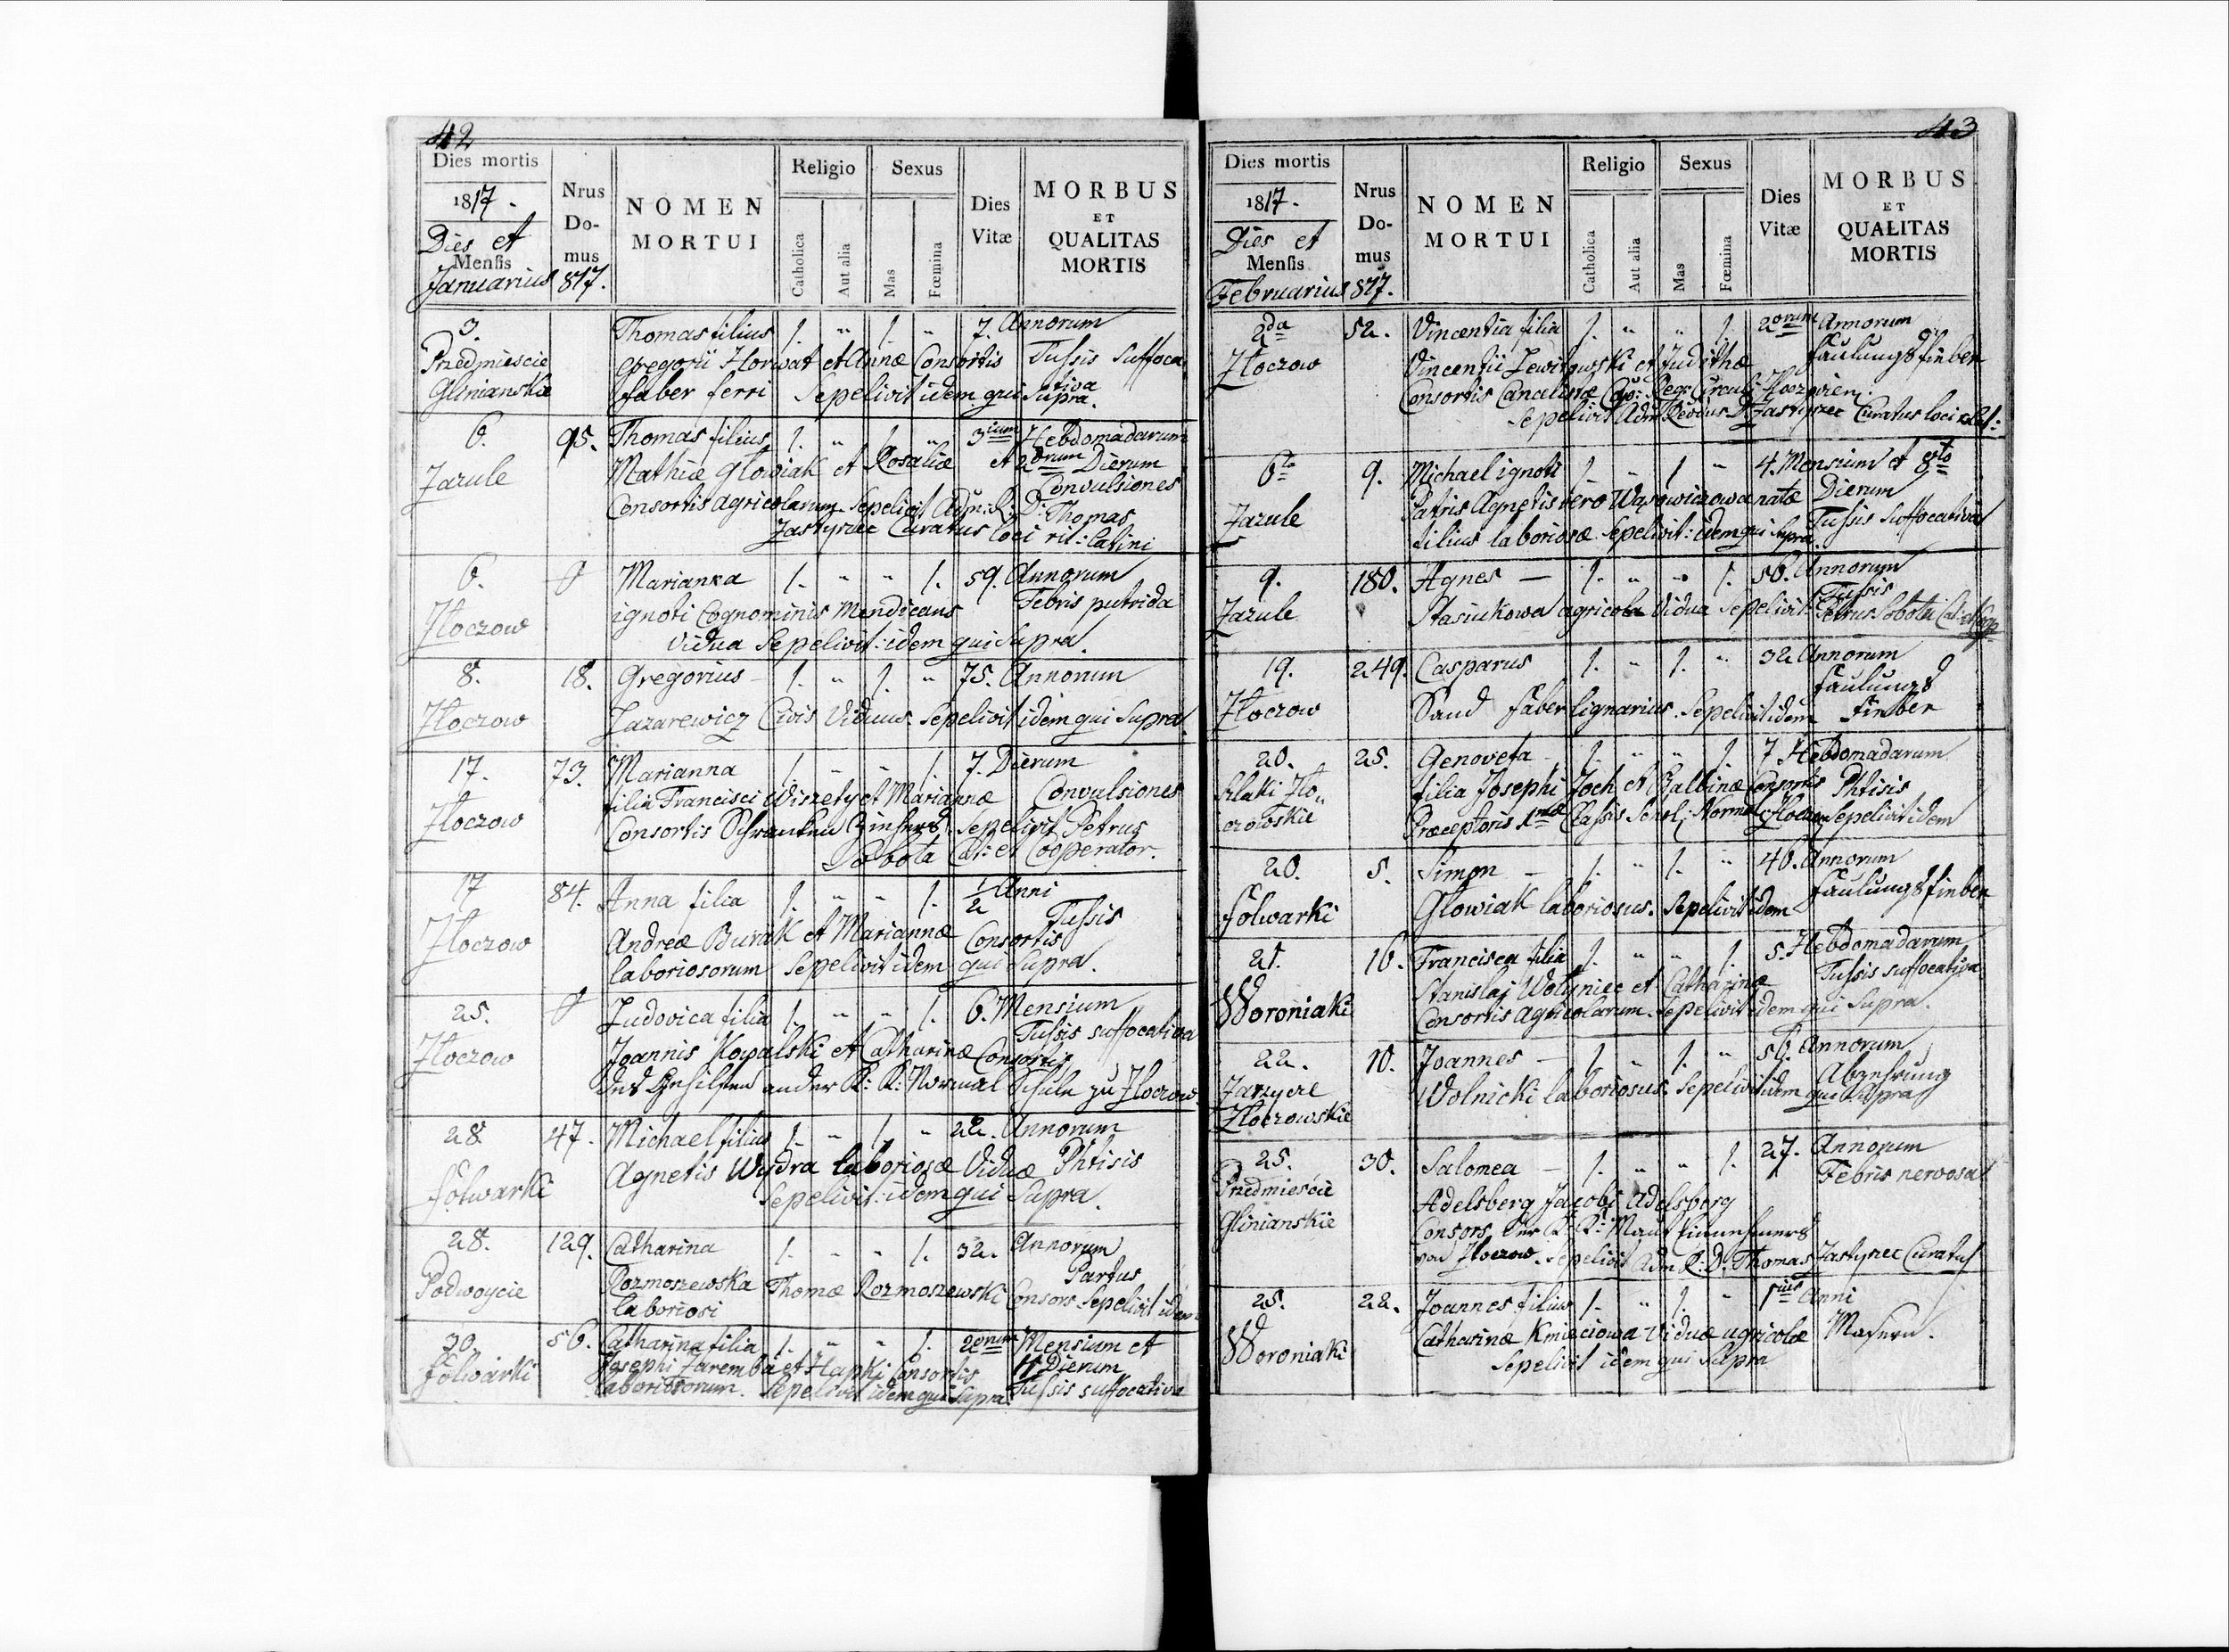 42
Dies mortis
1817.
Dies et
Mensis
Januarius 817.
Nrus
Do-
mus
NOMEN
MORTUI
Religio
Catholica
Aut alia
Sexus
Mas
Fœmina
Dies
Vitæ
MORBUS
ET
QUALITAS
MORTIS
3. Thomas filius 1. " 1. " 7. Annorum
Przedmiescie Gregorii Horwat et Annæ Consortis Tussis Suffoca
Glinianskie faber ferri Sepelivit idem qui Supra. tiva
6. 95. Thomas filius 1. " 1. " 3ium Hebdomadarum
Jazule Mathiæ Glowiak et Rosaliæ et 2orum Dierum
Convulsiones
Consortis Agricolarum Sepelivit Adm: R: D: Thomas
Zastyrzec Curatus loci rit: Latini
6. Marianna 1. " " 1. 59. Annorum
Złoczow ignoti Cognominis Mendicans Febris putrida
Vidua Sepelivit: idem qui Supra.
8. 18. Gregorius 1. " 1. " 75. Annorum
Złoczow Lazarewicz Civis Viduus. Sepelivit idem qui Supra
17. 73. Marianna 1. " " 1. 7. Dierum
Złoczow filia Francisci Wiszety et Mariannæ Convulsiones
Consortis Schranken Sepelivit Petrus
Sobota Cat: et Cooperator.
17 84. Anna filia 1. " " 1. 1/2 Anni
Złoczow Andreæ Burak et Mariannæ Consortis Tussis
laboriosorum Sepelivit idem qui Supra.
25. Ludovica filia 1. " " 1. 6. Mensium
Tussis suffocativa
Złoczow Joannis Kowalski et Catharinæ Consortis
des Gehilfen an der K: K: Normal Schule zu Złoczow
28 47. Michael filius 1. " 1. " 22. Annorum
Folwarki Agnetis Wydra laboriosæ Viduæ Phtisis
Sepelivit: idem qui Supra.
28. 129. Catharina 1. " " 1. 32. Annorum
Partus
Podwoycie Rozmoszewska Thomæ Rozmoszewski Consors Sepelivit idem
laboriosi
30. 56. Catharina filia 1. " " 1. 2orum Mensium et
Folwarki Josephi Zaremba et Hapki Consortis 11 Dierum
laboriosorum. Sepelivit idem qui Supra Tussis suffocativa
43
Dies mortis
1817.
Dies et
Mensis
Februarius 817.
Nrus
Do-
mus
NOMEN
MORTUI
Religio
Catholica
Aut alia
Sexus
Mas
Fœmina
Dies
Vitæ
MORBUS
ET
QUALITAS
MORTIS
2da 52. Vincentia filia 1. " " 1. 2orum Annorum
Złoczow Vincentii Lewitowski et Judithæ Faulungsfieber
Consortis Cancelistæ Reg: Circuli
Sepelivit Adm Revdus D. Zastyrzec Curatus loci
6to 9. Michael ignoti 1. " 1. " 4. Mensium et 8to
Jazule Patris Agnetis vero Wąsowiczowa natæ Dierum
filius laboriosæ. Sepelivit: idem qui Supra Tussis Suffocativa
9. 180. Agnes — 1. " " 1. 50. Annorum
Tussis
Jazule Stasiukowa agricola Vidua Sepelivit: Petrus Sobota Cat:
19. 249. Casparus 1. " 1. " 32 Annorum
Faulungs
Złoczow Sand faber lignarius. Sepelivit idem fieber
20. 25. Genovefa 1. " " 1. 7 Hebdomadarum
Szlaki Zło„ filia Josephi Joch et Balbinæ Consortis Phtisis
czowskie Præceptoris 1mæ Classis Schol: Normal: Złoczow Sepelivit idem
20. 5. Simon — 1. " 1. " 40. Annorum
Faulungsfieber
Folwarki Glowiak laboriosus. Sepelivit idem
21. 16. Francisca filia 1. " " 1. 5. Hebdomadarum
Woroniaki Stanislai Wołyniec et Catharinæ Tussis suffocativa
Consortis Agricolarum. Sepelivit idem qui Supra.
22. 10. Joannes — 1. " 1. " 56. Annorum
Zarzycze Wolnicki laboriosus. Sepelivit idem qui Supra Abzehrung
Złoczowskie
25. 30. Salomea — 1. " " 1. 27. Annorum
Przedmiescie Adelsberg Jacobi Adelsberg Febris nervosa
Glinianskie Consors der K: K: Maut Einnehmers
von Złoczow. Sepelivit Adm R: D: Thomas Zastyrzec Curatus
25. 22. Joannes filius 1. " 1. " 1ius Anni
Woroniaki Catharinæ Kmieciowa Viduæ agricolæ Masern.
Sepelivit idem qui Supra